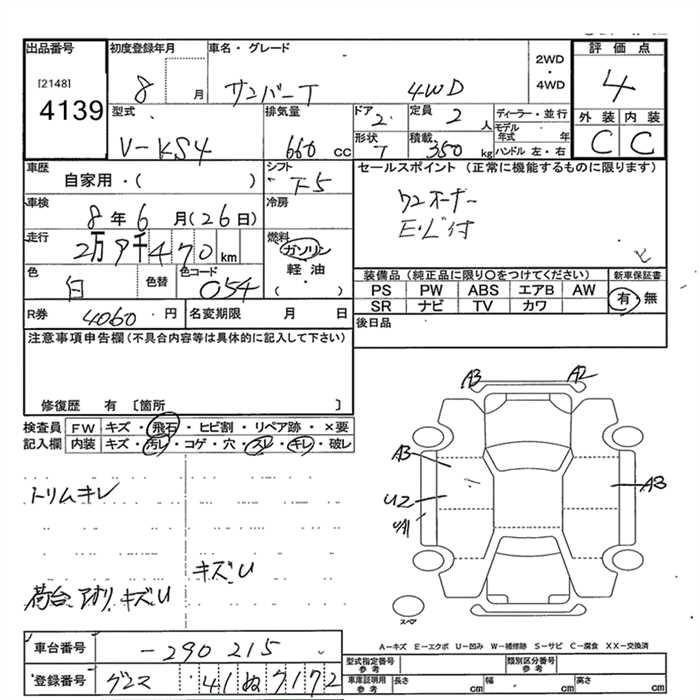 出品番号 初度登録年月 車名・グレード 2WD・4WD 評価点
[2148] 8 月 サンバーT 4WD 4
4139 型式 排気量 ドア 2 定員 2 人 ディーラー・並行 外装 内装
V-KS4 660 cc 形状 T 積載 350 kg モデル年式 年 C C
ハンドル 左・右
車歴 シフト セールスポイント (正常に機能するものに限ります)
自家用・( ) F5
車検 冷房 ワンオーナー
8年6月(26日) E/L付
走行 2万9千470km 燃料
ガソリン
色 白 色替 色コード 054 軽油 装備品 (純正品に限り○をつけてください) 新車保証書
( ・ ) PS PW ABS エアB AW 有・無
R券 4060 円 名変期限 月 日 SR ナビ TV カワ
注意事項申告欄(不具合内容等は具体的に記入して下さい) 後日品
修復歴 有 [箇所 ]
A3 A2
検査員 FW キズ・飛石・ヒビ割・リペア跡・×要
記入欄 内装 キズ・汚レ・コゲ・穴・スレ・キレ・破レ
A3
トリムキレ U2 A3
UA1
キズU
荷台、アオリ、キズU
スペア
A-キズ E-エクボ U-凹み W-補修跡 S-サビ C-腐食 XX-交換済
車台番号 -290215
型式指定番号参考 類別区分番号参考
登録番号 グンマ 41ぬ7172 車庫証明用参考 長さ cm 幅 cm 高さ cm